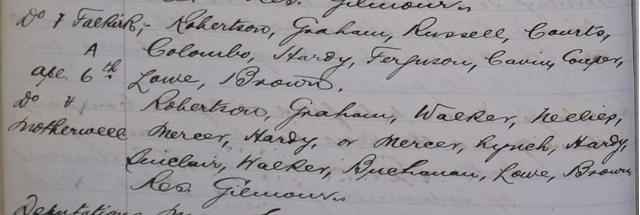 Res. Gilmour.
Do v Falkirk,- Robertson, Graham, Russell, Couts,
A Colombo, Hardy, Ferguson, Gavin, Couper,
ape. 6th Lowe, Brown.
Do v Robertson, Graham, Walker, Neilies,
Motherwell Mercer, Hardy, or Mercer, Lynch, Hardy,
Sinclair, Walker, Buchanan, Lowe, Brown
Res. Gilmour.
Deputations